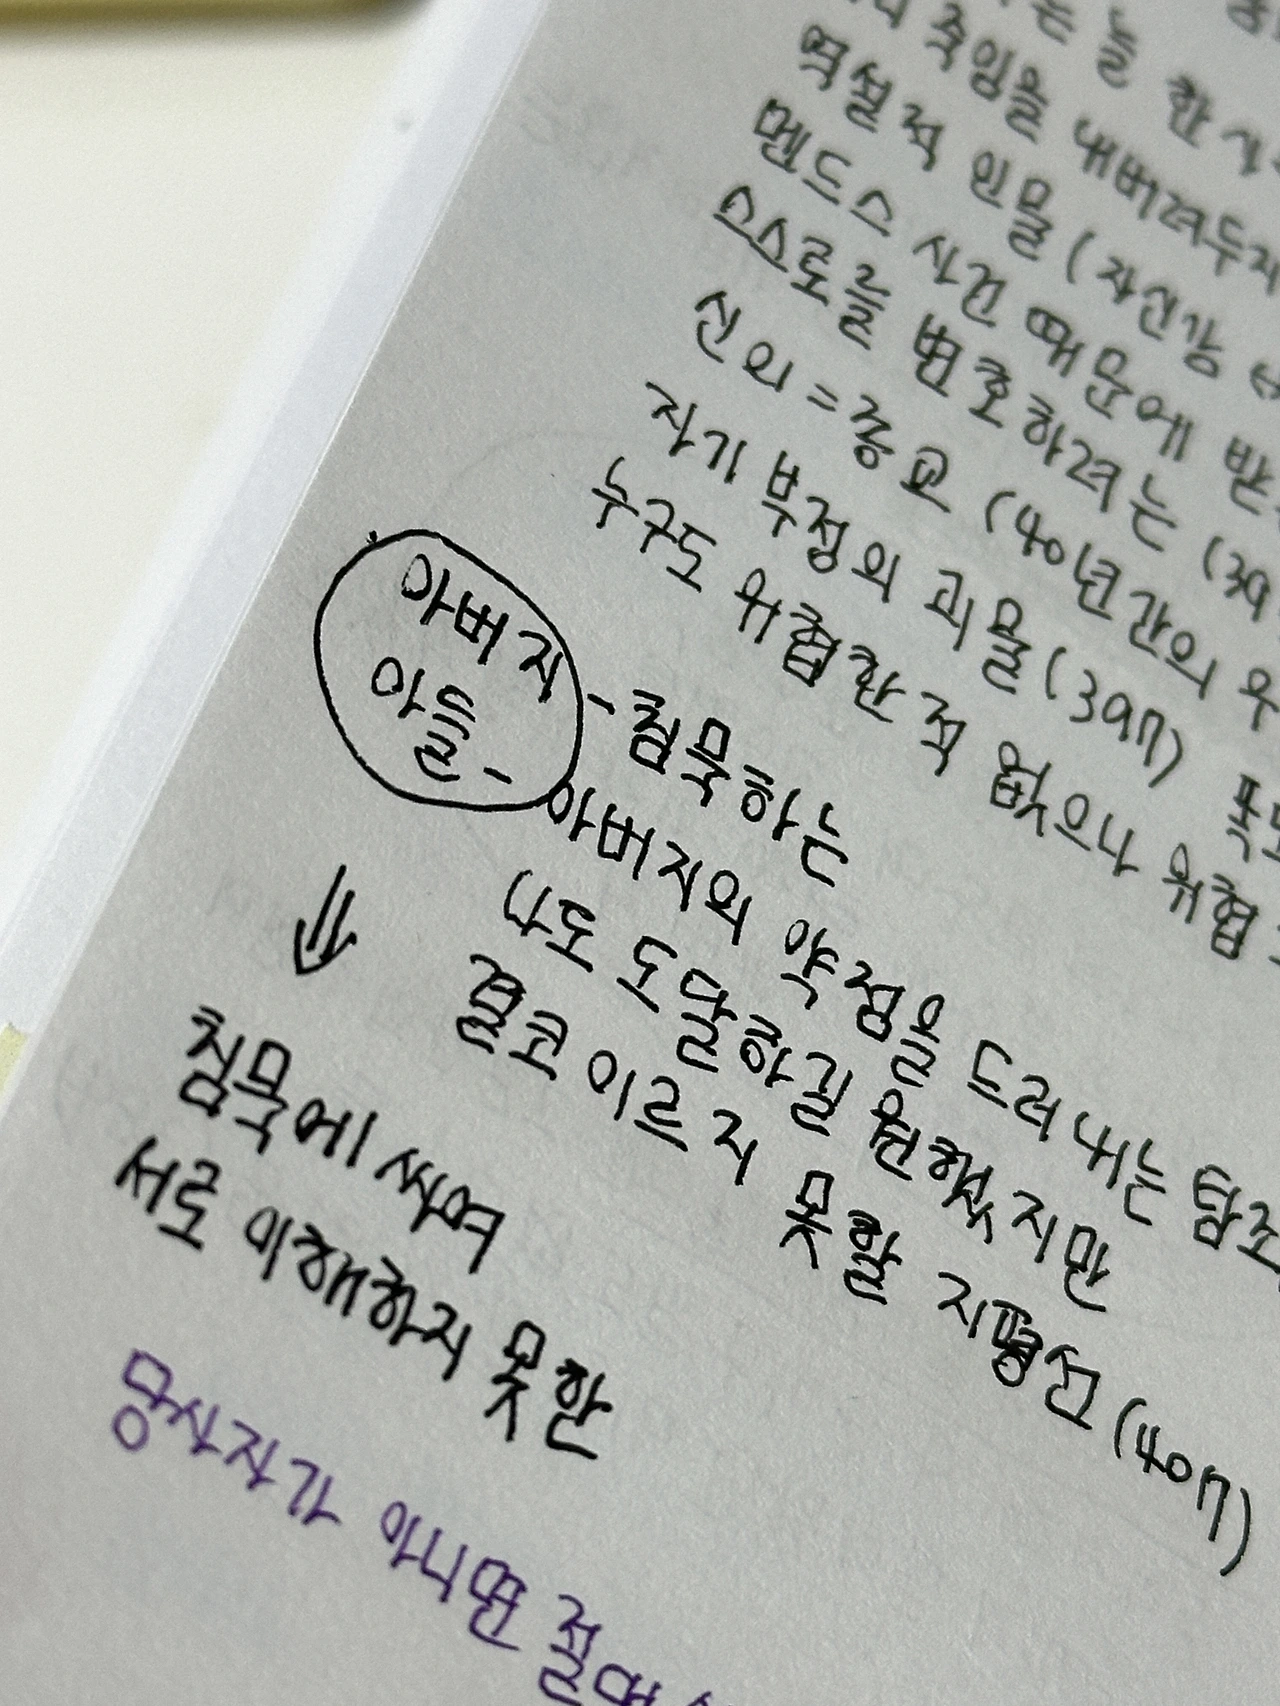 는 늘 한
죽임을 내버려두
역설적 인물 (자신감
멘드스 사건 때문에 받
스스로를 변호하려는 (39
신의 = 종교 (40년간의 우
자기 부정의 괴물 (397)
누구도 위협한 적 없으나 위협
아버지 - 침묵하는
아들 - 아버지의 약점을 드러내는
(나도 도달하길 원했지만
결코 이르지 못할 지평선 (407)
⇓
침묵에 싸여
서로 이해하지 못한
당사자가 아니면 절대